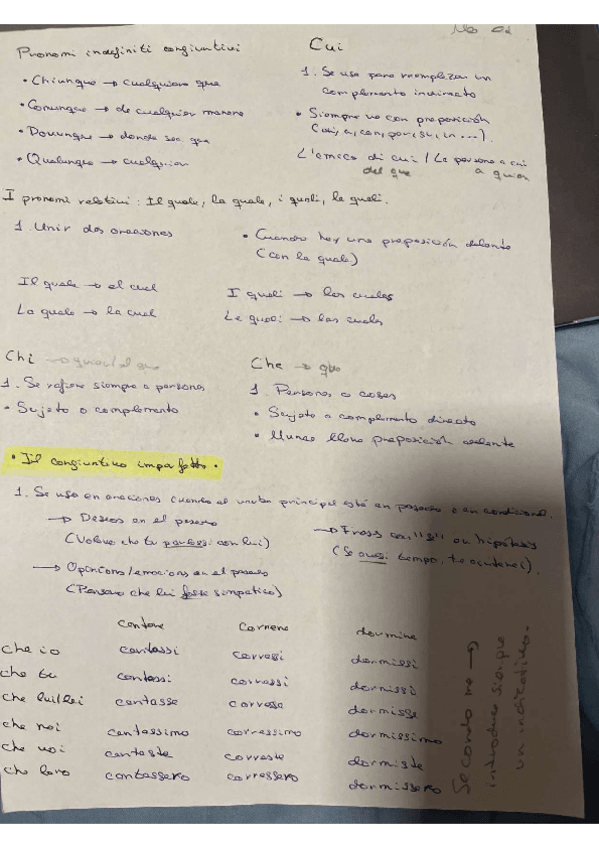 No 02
Pronomi indefiniti congiuntivi
• Chiunque → cualquiera que
• Comunque → de cualquier manera
• Dovunque → donde sea que
• Qualunque → cualquier
Cui
1. Se usa para reemplazar un
complemento indirecto
• Siempre va con preposición
(di, a, con, por, su, in ...).
L'amico di cui / La persona a cui
del que a quien
I pronomi relativi: Il quale, la quale, i quali, le quali.
1. Unir dos oraciones
• Cuando hay una preposición delante
(con la quale)
Il quale → el cual
La quale → la cual
I quali → los cuales
Le quali → las cuales
Chi → quien/el que
1. Se refiere siempre a personas
• Sujeto o complemento
Che → que
1. Personas o cosas
• Sujeto o complemento directo
• Nunca lleva preposición delante
• Il congiuntivo imperfetto.
1. Se usa en oraciones cuando el verbo principal está en pasado o en condicional.
→ Deseos en el pasado
(Volevo che tu parlassi con lui)
→ Frases con "se" en hipótesis
(Se avessi tempo, te aiuterei).
→ Opinions/emocions en el pasado
(Pensavo che lui fosse simpatico)
cantare correre dormire
che io cantassi corressi dormissi
che tu cantassi corressi dormissi
che lui/lei cantasse corresse dormisse
che noi cantassimo corressimo dormissimo
che voi cantaste correste dormiste
che loro cantassero corressero dormissero
Secondo me →
introduce siempre
un indicativo.